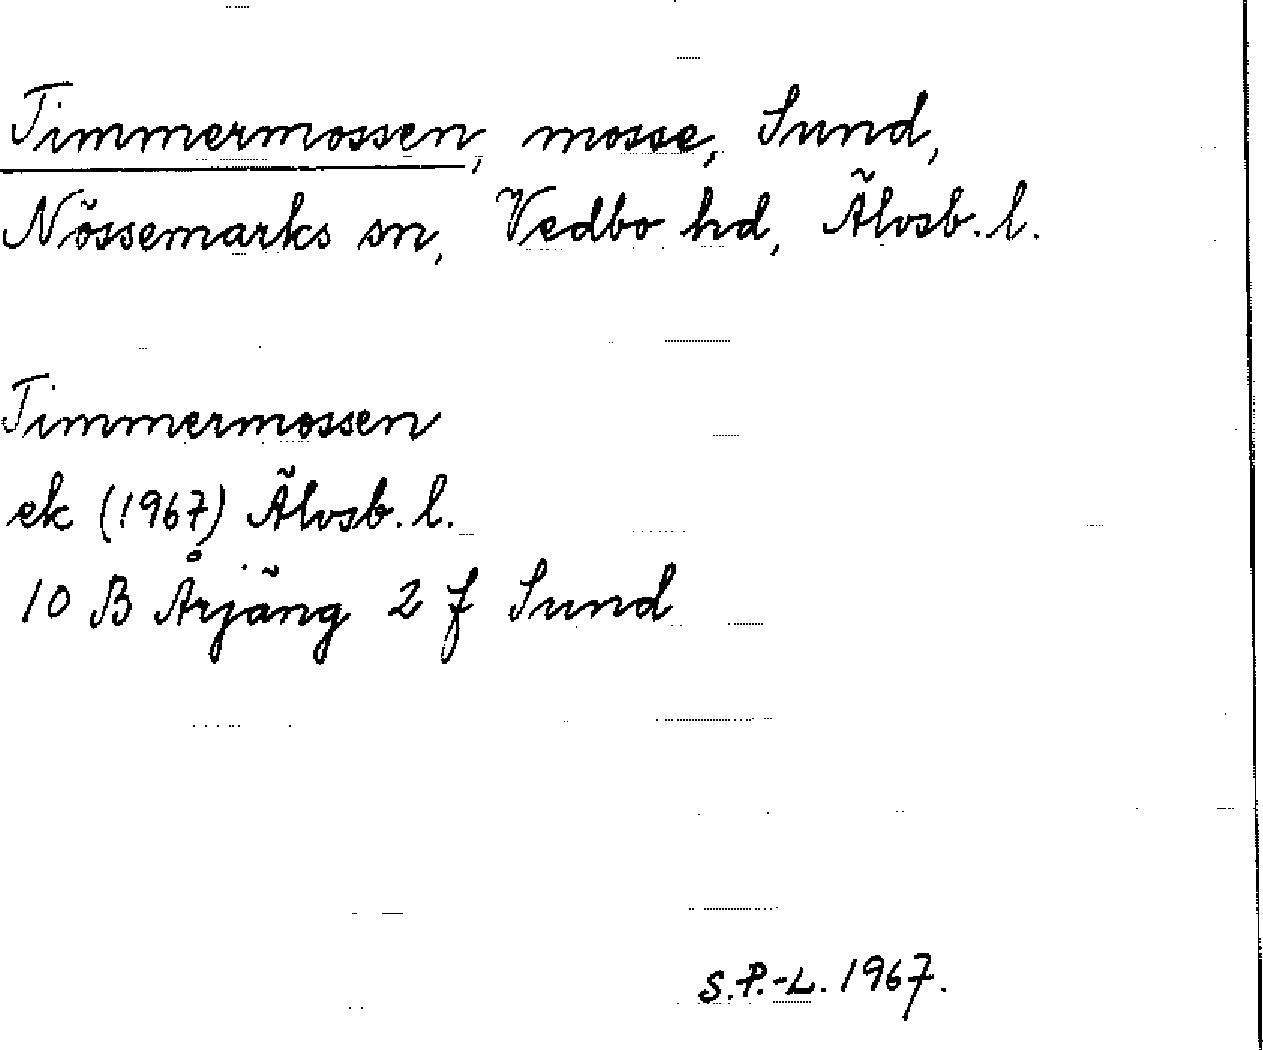 Timmermossen, mosse, Sund,
Nössemarks sn, Vedbo hd, Älvsb. l.
Timmermossen
ek (1967) Älvsb. l.
10 B Årjäng 2 f Sund
S.P.-L. 1967.